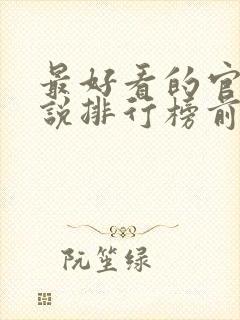 最好看的官
说排行榜前
阮笙绿